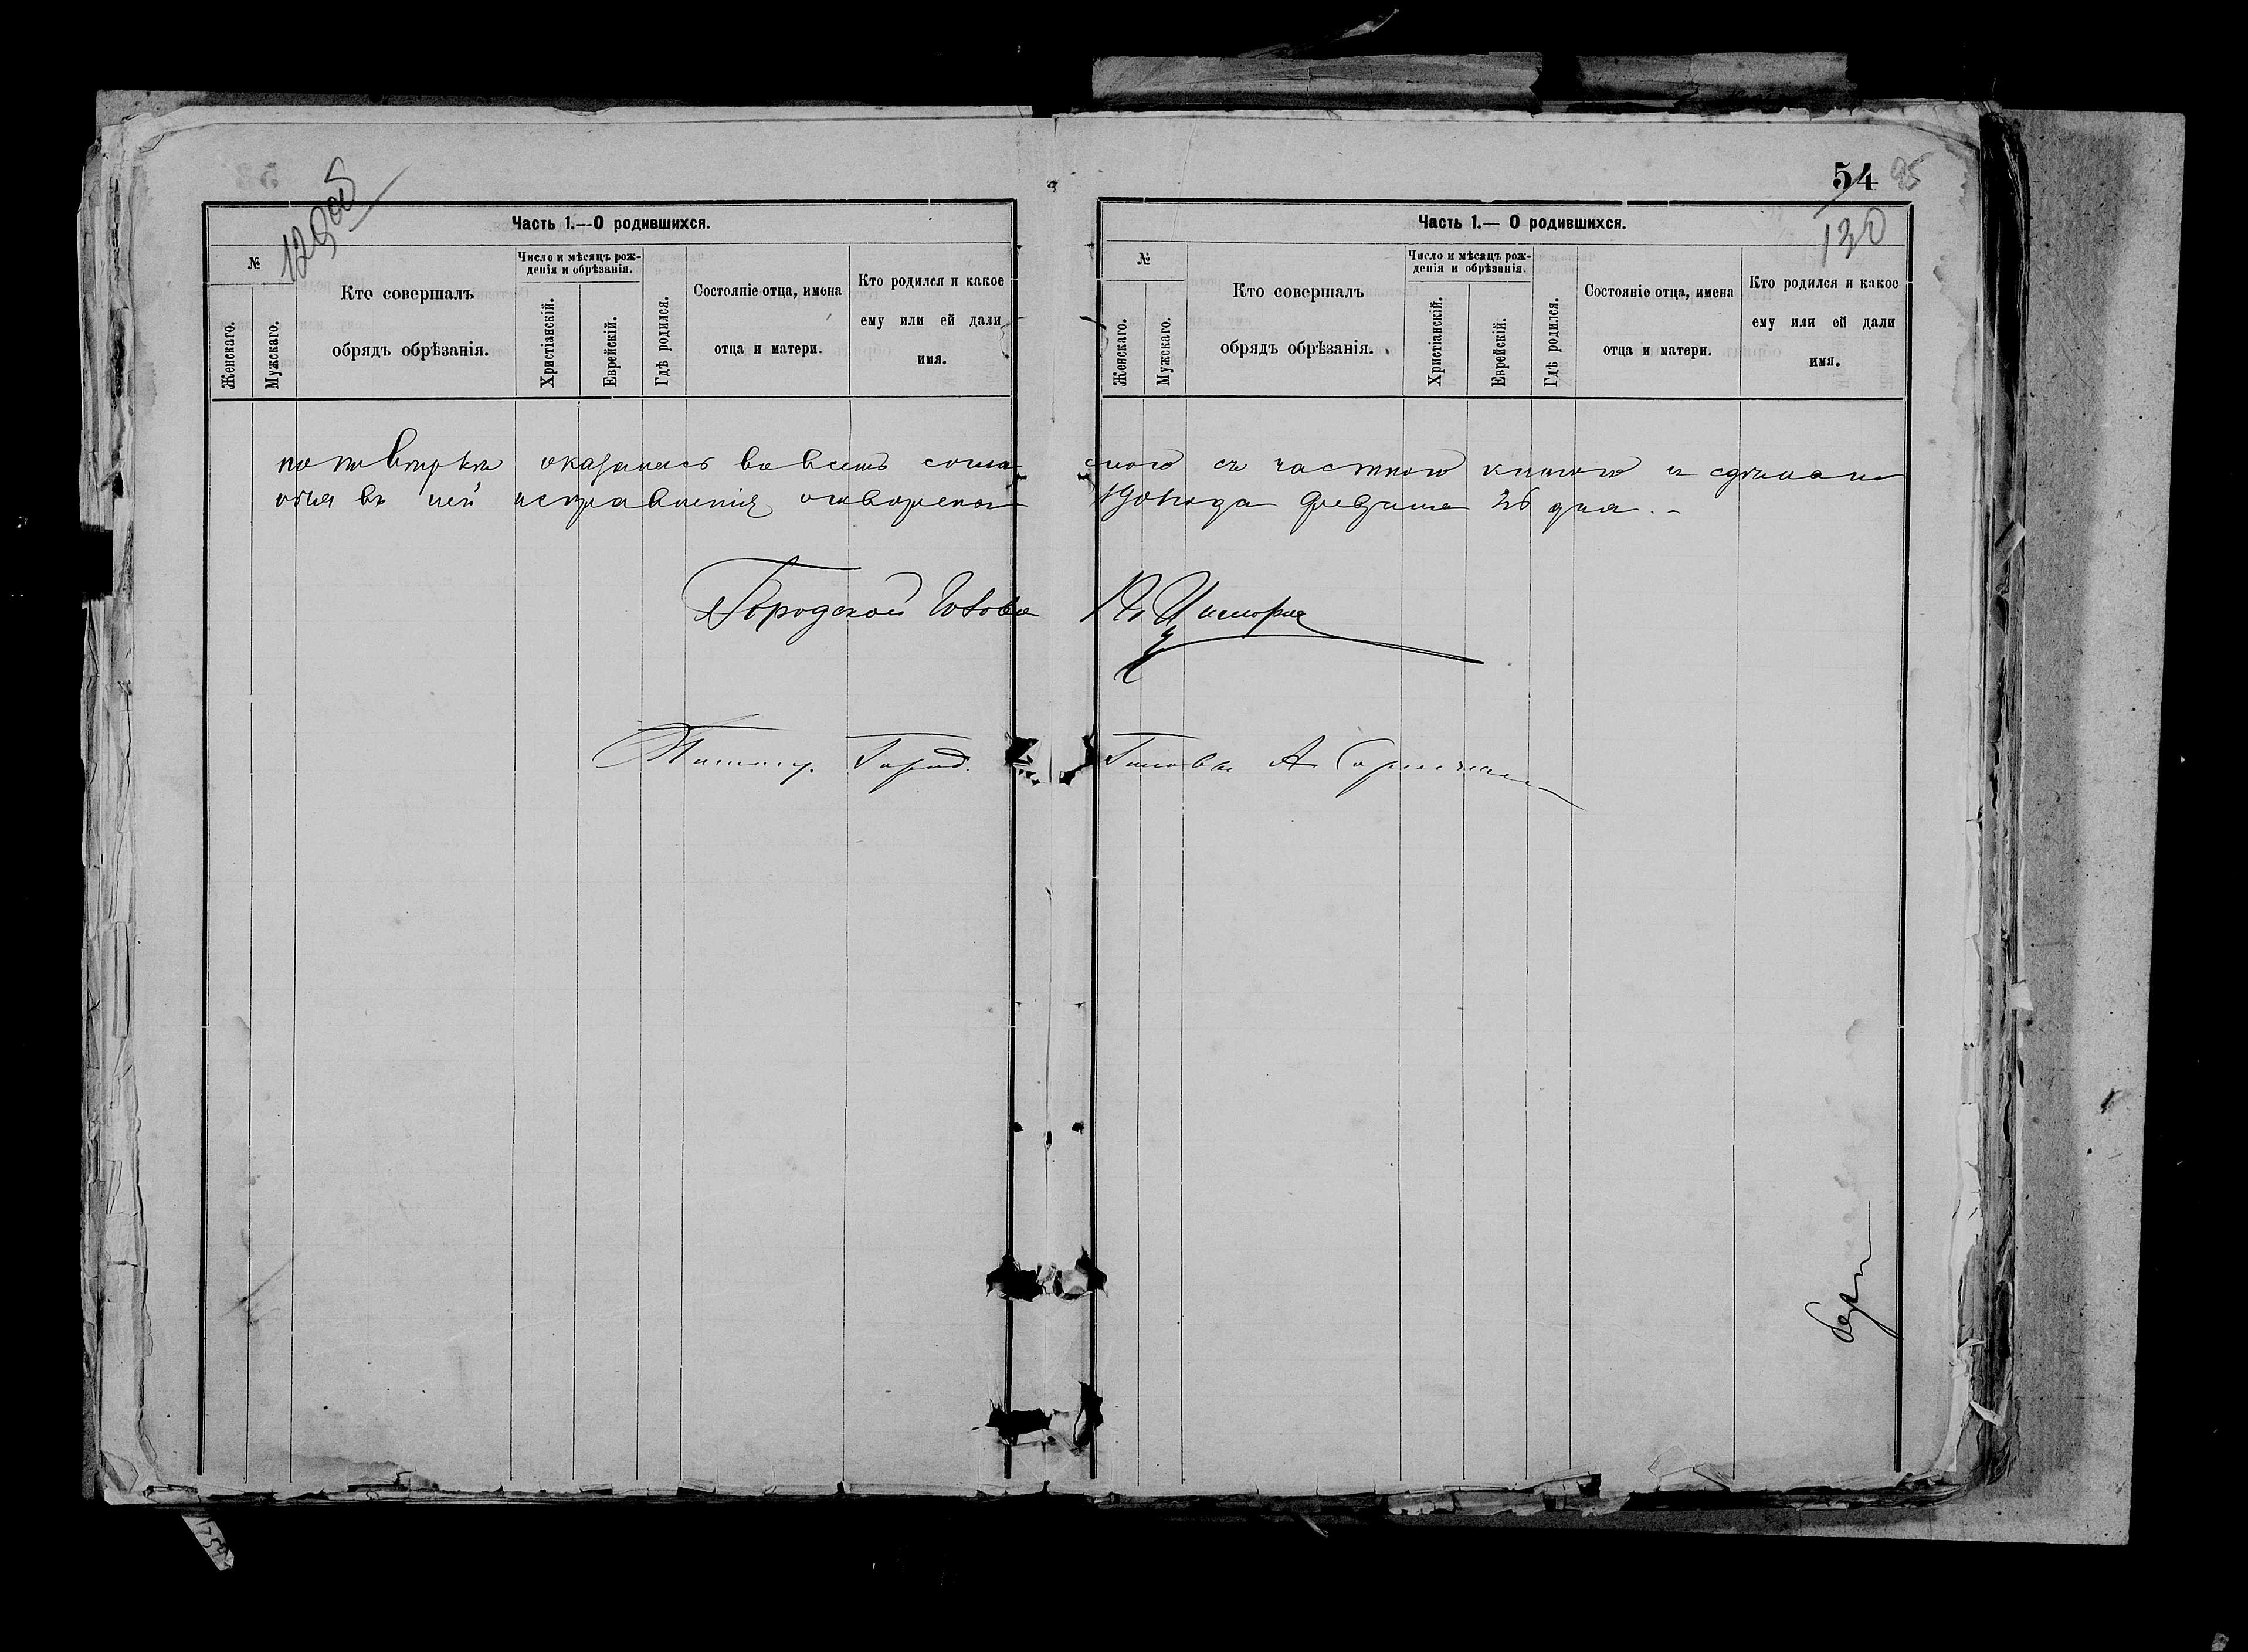 129 об
Часть 1.—О родившихся.
№
Женскаго.
Мужскаго.
Кто совершалъ
обрядъ обрѣзанія.
Число и мѣсяцъ рож-
денія и обрѣзанія.
Христіанскій.
Еврейскій.
Гдѣ родился.
Состояніе отца, имена
отца и матери.
Кто родился и какое
ему или ей дали
имя.
54 95
130
Часть 1.— О родившихся.
№
Женскаго.
Мужскаго.
Кто совершалъ
обрядъ обрѣзанія.
Число и мѣсяцъ рож-
денія и обрѣзанія.
Христіанскій.
Еврейскій.
Гдѣ родился.
Состояніе отца, имена
отца и матери.
Кто родился и какое
ему или ей дали
имя.
по повѣркѣ оказалась во всемъ соглас ною съ частною книгою и
въ ней исправленія года 26 дня.
Городской Голова
Город. Голова А